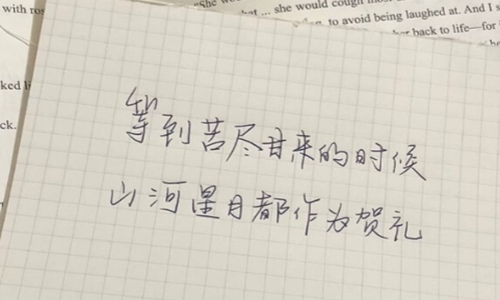 with ro
"She w
... she would cough most
to avoid being laughed at. And I s
her back to life—for
ked l
ck.
等到苦尽甘来的时候
山河星月都作为贺礼